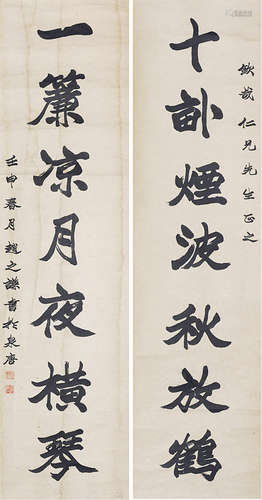 欽哉仁兄先生正之
十畝煙波秋放鶴
一簾凉月夜橫琴
壬申春月趙之謙書於泉唐